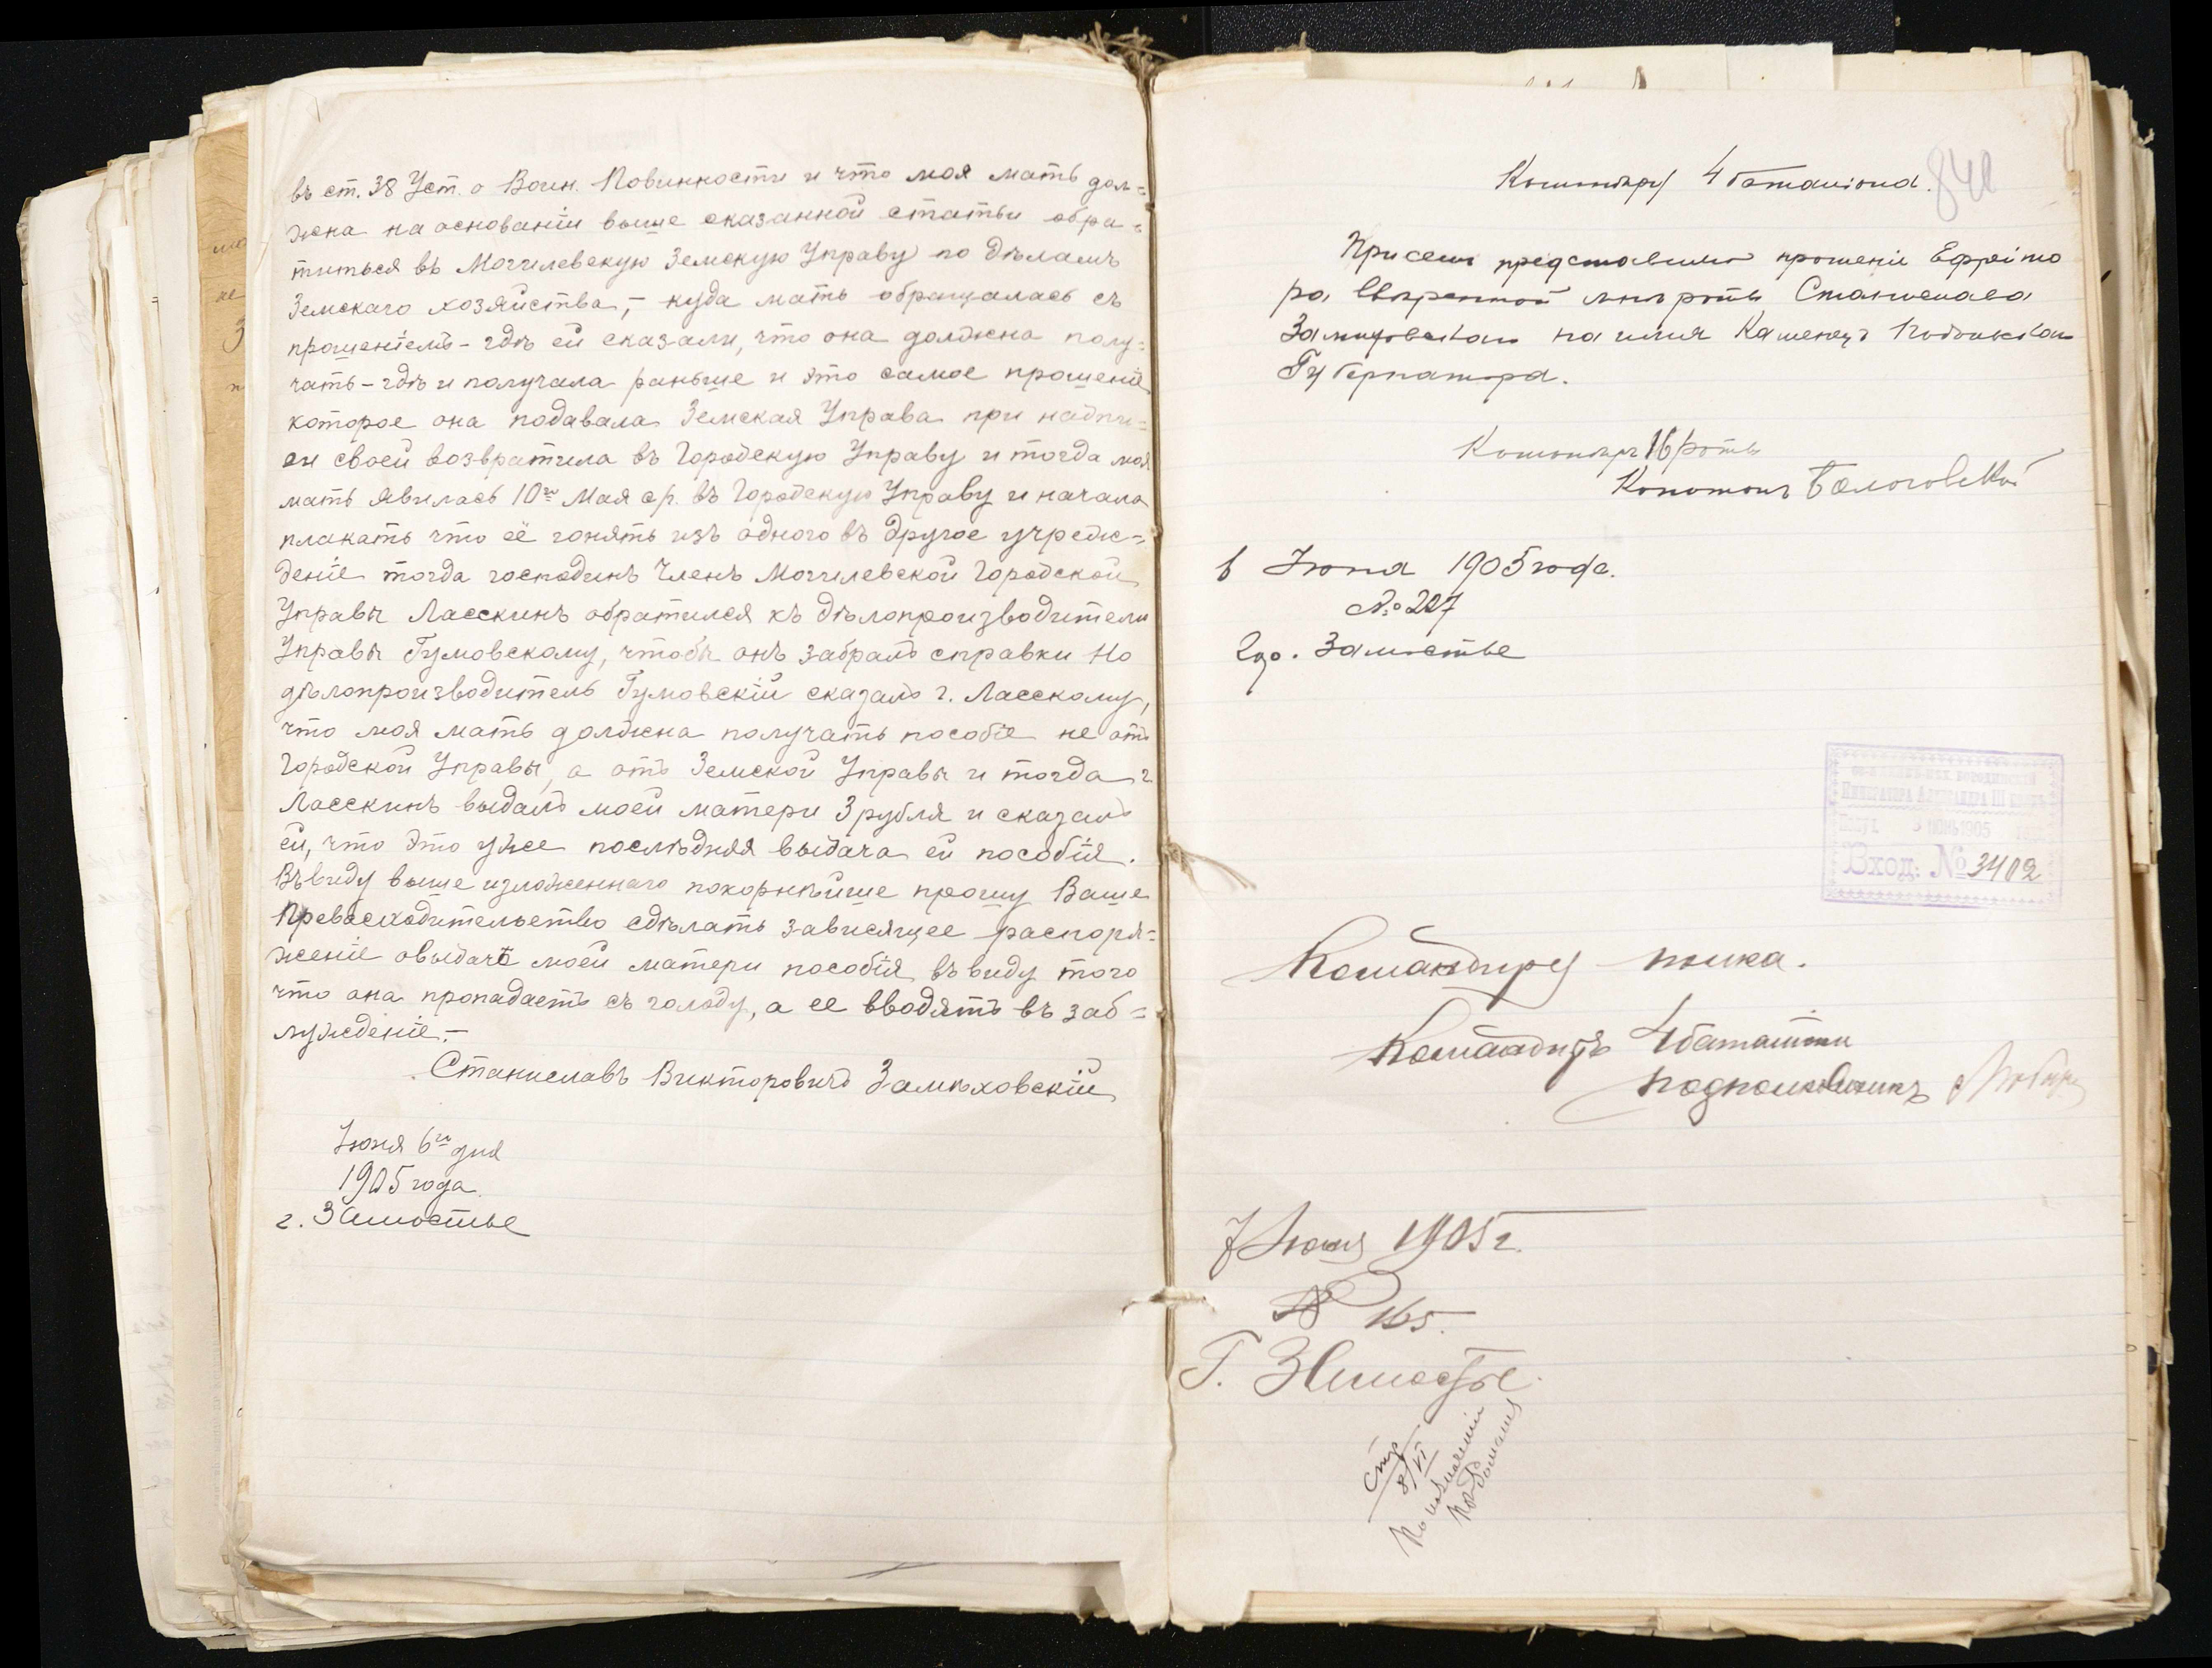 въ ст. 38 Уст. о Воин. Повинности и что моя мать дол=
жна на основаніи выше сказанной статьи обра=
титься въ Могилевскую Земскую Управу по дѣламъ
Земскаго хозяйства, – куда мать обращалась съ
прошеніемъ – гдѣ ей сказали, что она должна полу=
чать – гдѣ и получала раньше и это самое прошеніе
которое она подавала Земская Управа при надпи=
си своей возвратила въ Городскую Управу и тогда моя
мать явилась 10го Мая с/г. въ Городскую Управу и начала
плакать что её гонятъ изъ одного въ другое учреж=
деніе тогда господинъ Членъ Могилевской Городской
Управы Ласскинъ обратился къ дѣлопроизводителю
Управы Гумовскому, чтобы онъ забралъ справки Но
дѣлопроизводитель Гумовскій сказалъ г. Ласскому,
что моя мать должна получать пособіе не отъ
Городской Управы, а отъ Земской Управы и тогда г
Ласскинъ выдалъ моей матери 3 рубля и сказалъ
ей, что это уже послѣдняя выдача ей пособія.
Въ виду выше изложеннаго покорнѣйше прошу Ваше
Превосходительство сдѣлать зависящее распоря=
женіе о выдачѣ моей матери пособія въ виду того
что она пропадаетъ съ голоду, а ее вводятъ въ заб=
лужденіе. –
Станиславъ Викторовичъ Замѣховскій
Іюня 6го дня
1905 года
г. Замостье
840
Командиру 4 баталіона.
При семъ представляю прошеніе Ефрейто
ра ввѣренной мнѣ роты Станислава
Замѣховскаго на имя Каменецъ Подольскаго
Губернатора.
Командиръ 16 роты
Капитанъ
6 Іюня 1905 года.
№ 227
Гор. Замостье
Императора Александра III
1905
Вход. № 3402
Командиру полка.
Командиръ 4 баталіона
подполковникъ
7 Іюня 1905 г.
№ 165.
Г. Замостье.
8/VI
По назначенію